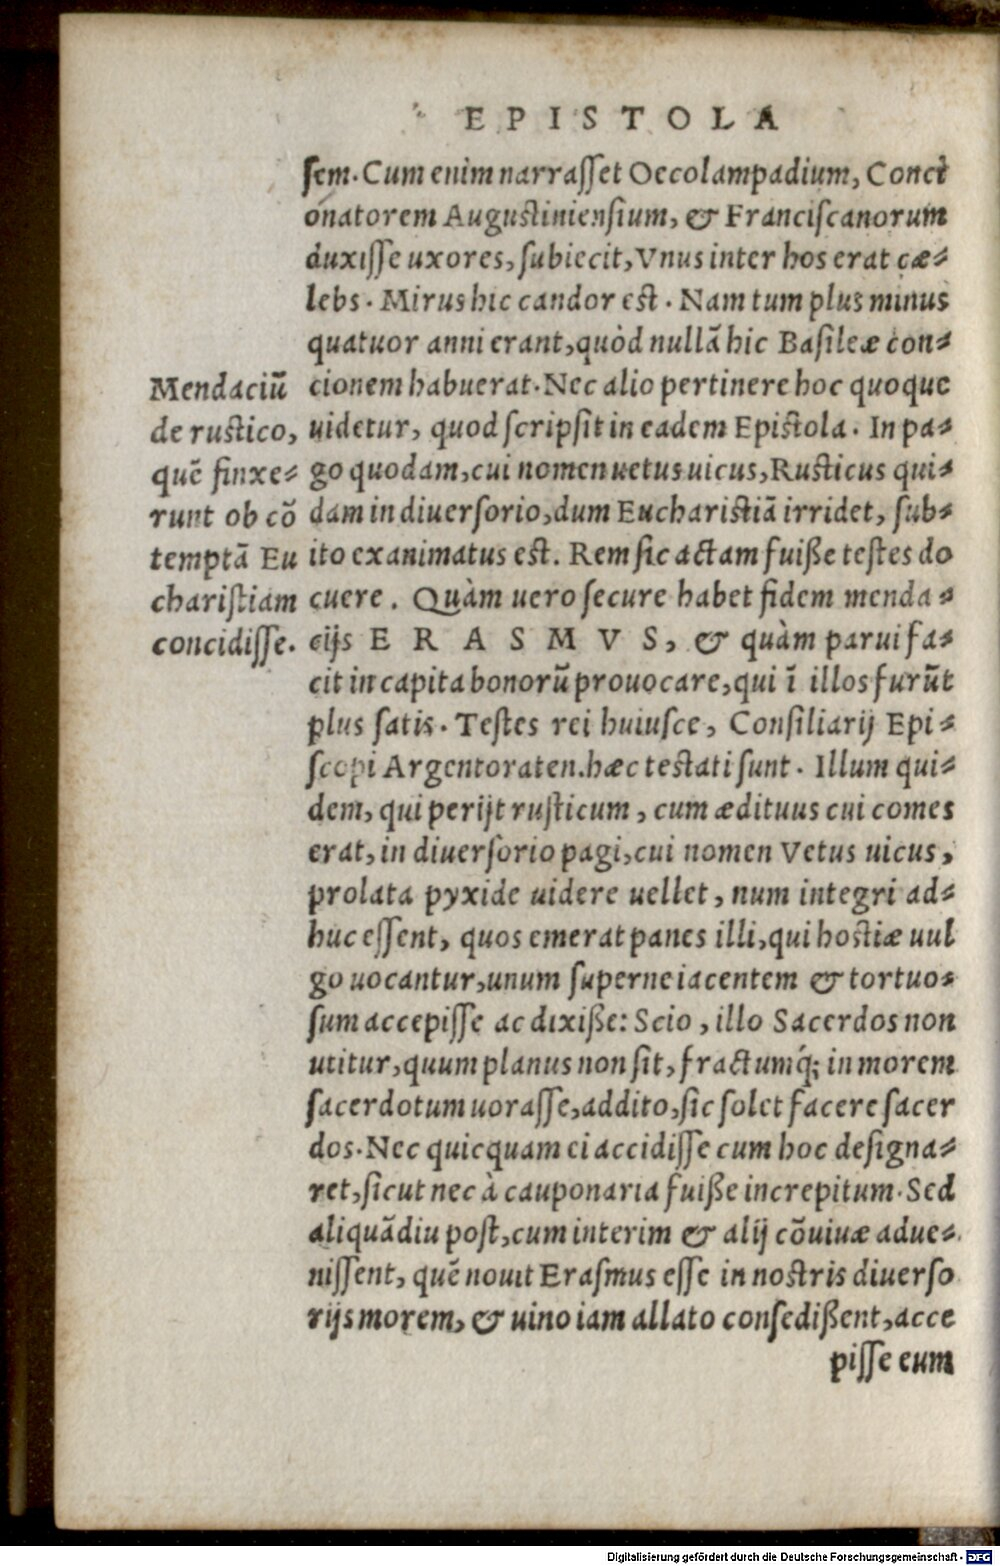 EPISTOLA
sem. Cum enim narrasset Oecolampadium, Conci
onatorem Augustiniensium, & Franciscanorum
duxisse uxores, subiecit, Vnus inter hos erat cæ-
lebs. Mirus hic candor est. Nam tum plus minus
quatuor anni erant, quòd nullã hic Basileæ con-
cionem habuerat. Nec alio pertinere hoc quoque
uidetur, quod scripsit in eadem Epistola. In pa-
go quodam, cui nomen uetus uicus, Rusticus qui-
dam in diuersorio, dum Eucharistiã irridet, sub-
ito exanimatus est. Rem sic actam fuiße testes do
cuere. Quàm uero secure habet fidem menda-
cijs ERASMVS, & quàm parui fa-
cit in capita bonorũ prouocare, qui ĩ illos furũt
plus satis. Testes rei huiusce, Consiliarij Epi-
scopi Argentoraten. hæc testati sunt. Illum qui-
dem, qui perijt rusticum, cum ædituus cui comes
erat, in diuersorio pagi, cui nomen Vetus uicus,
prolata pyxide uidere uellet, num integri ad-
huc essent, quos emerat panes illi, qui hostiæ uul
go uocantur, unum superne iacentem & tortuo-
sum accepisse ac dixiße: Scio, illo Sacerdos non
utitur, quum planus non sit, fractumq́; in morem
sacerdotum uorasse, addito, sic solet facere sacer
dos. Nec quicquam ei accidisse cum hoc designa-
ret, sicut nec à cauponaria fuiße increpitum. Sed
aliquãdiu post, cum interim & alij cõuiuæ adue-
nissent, quẽ nouit Erasmus esse in nostris diuerso
rijs morem, & uino iam allato consedißent, acce
pisse eum
Mendaciũ
de rustico,
quẽ finxe-
runt ob cõ
temptã Eu
charistiam
concidisse.
Digitalisierung gefördert durch die Deutsche Forschungsgemeinschaft - DFG